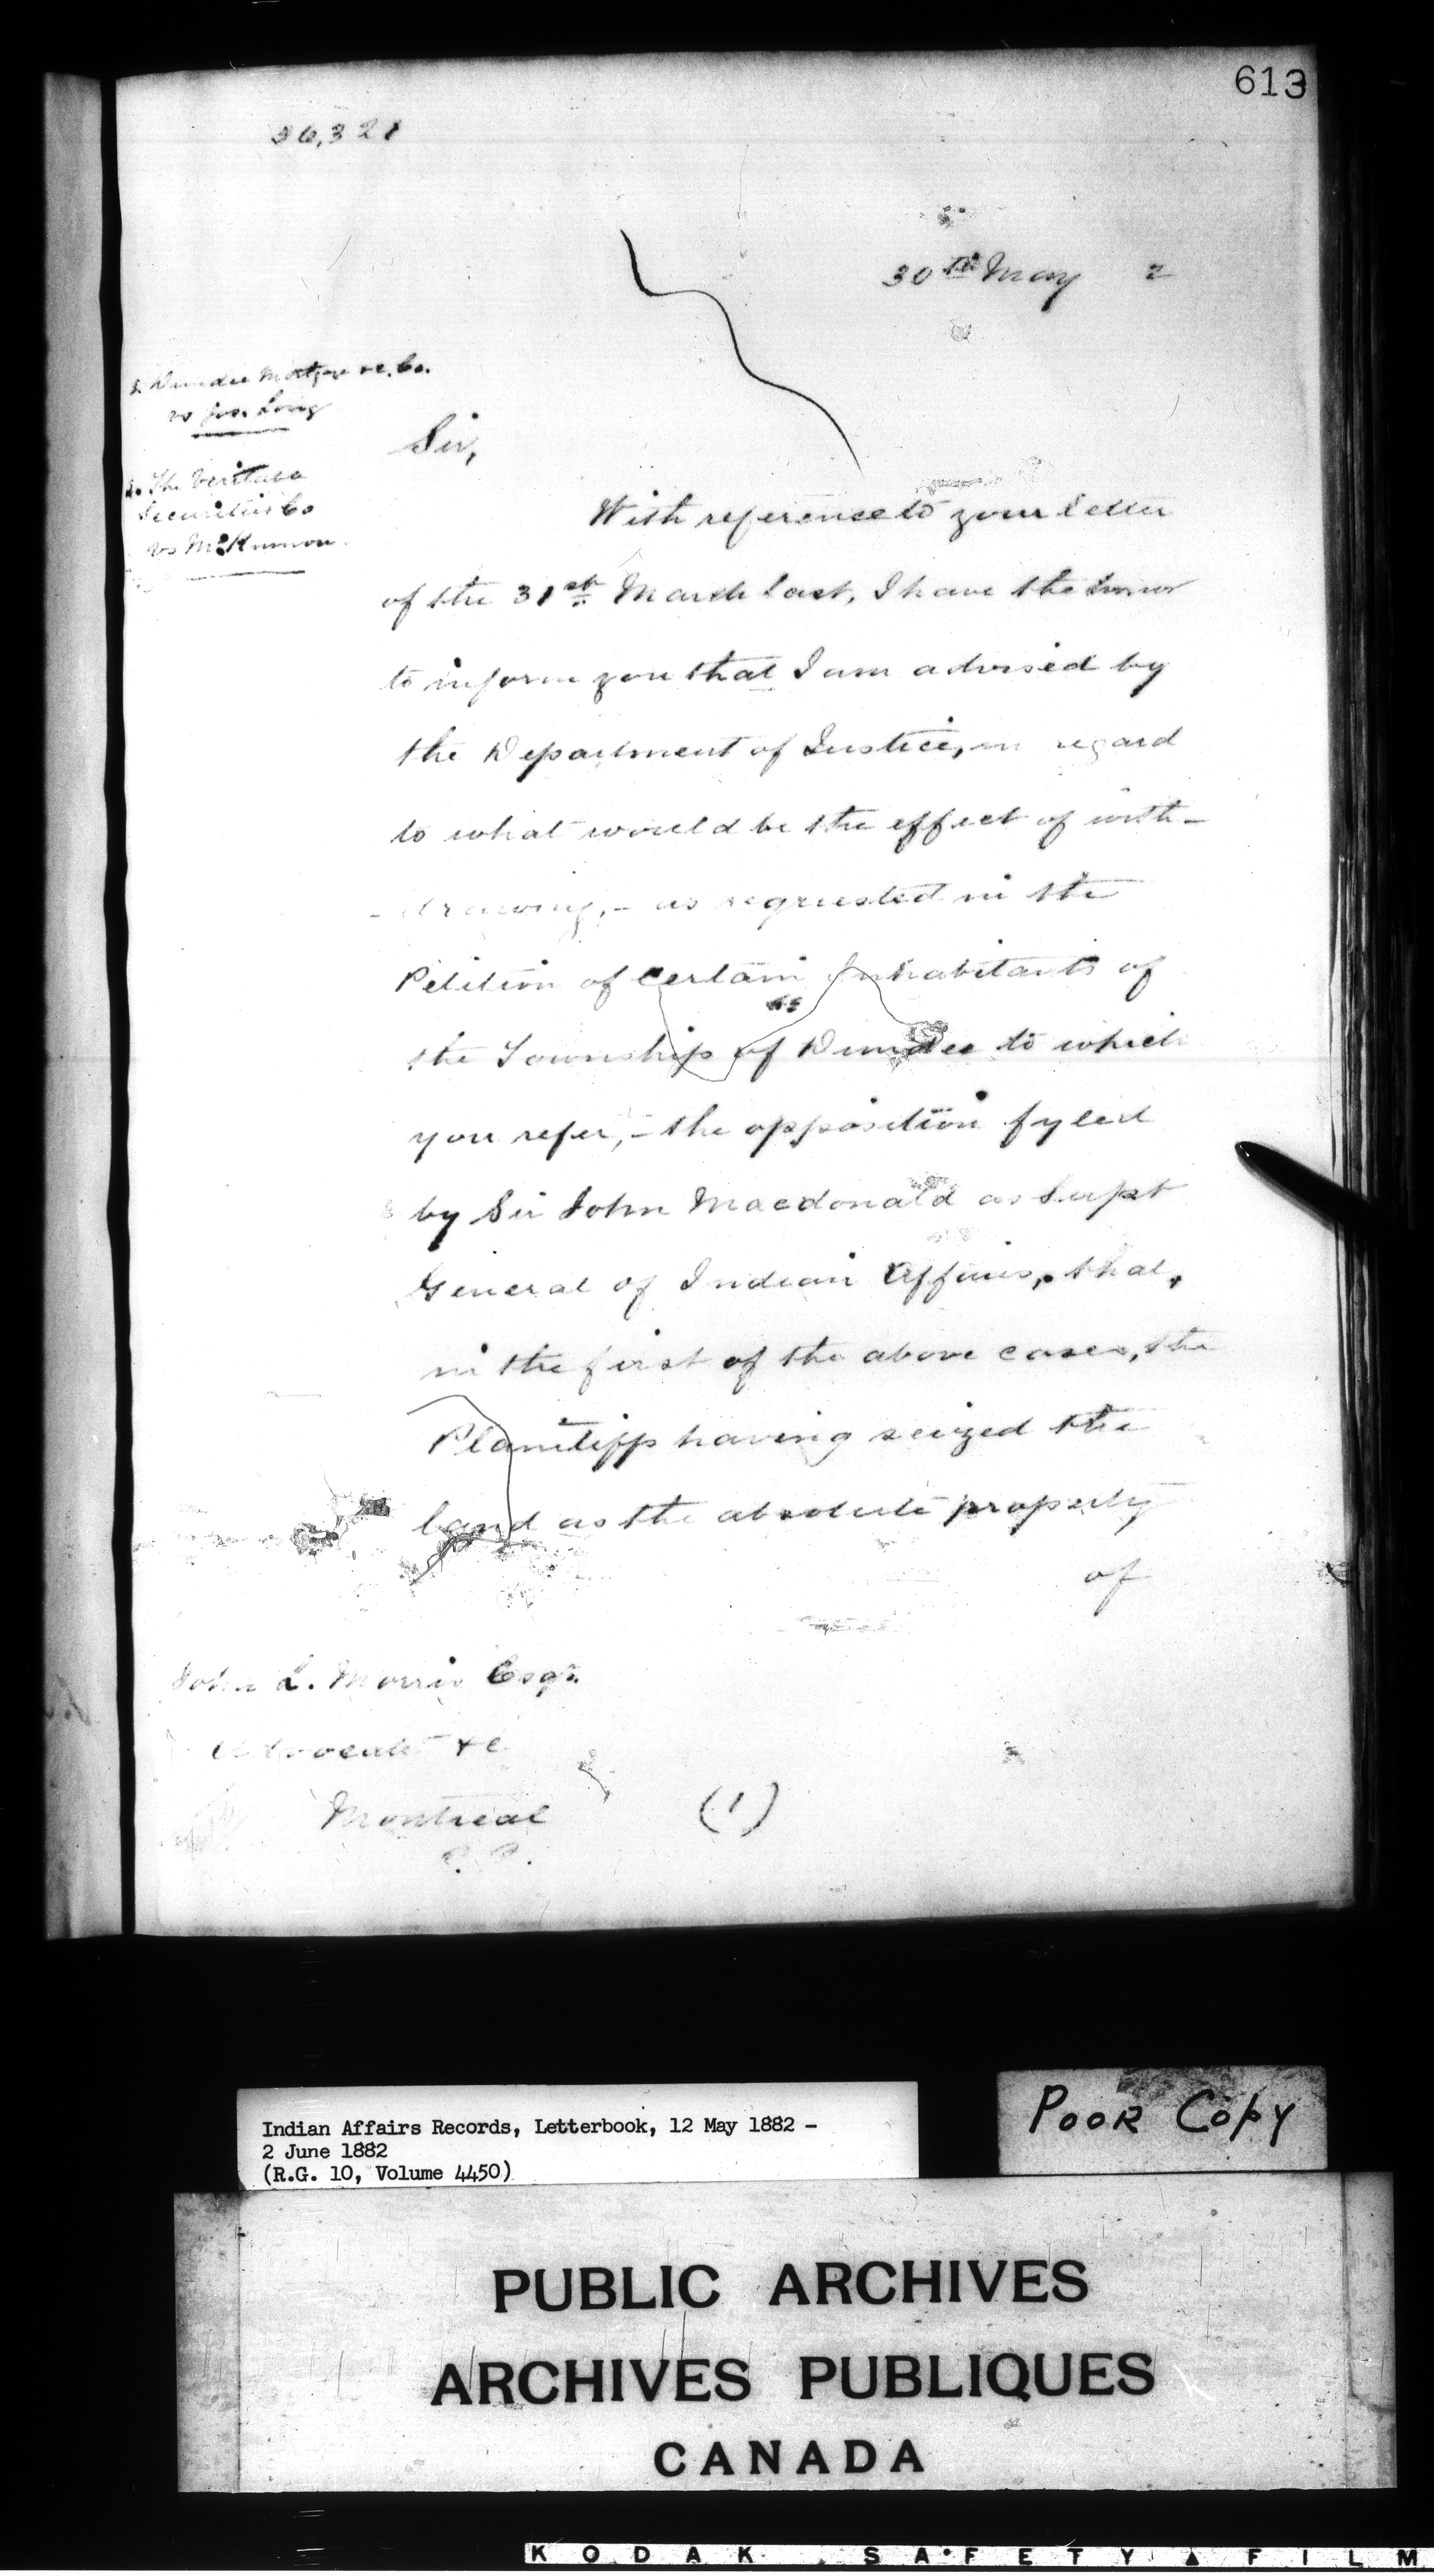 613
36,321
30th May 2
1. Dundee Mortgage &c. Co.
vs Jos. Long
2. The Veritable
Securities Co
vs McKinnon.
Sir,
With reference to your letter
of the 31st March last, I have the honor
to inform you that I am advised by
the Department of Justice, in regard
to what would be the effect of with-
-drawing, - as requested in the
Petition of certain Inhabitants of
the Township of Dundee to which
you refer, - the opposition fyled
by Sir John Macdonald as Supt
General of Indian Affairs, that,
in the first of the above cases, the
Plaintiff having seized the
land as the absolute property
of
John L. Morris Esqr.
Advocate &c
Montreal
P. Q.
(1)
Indian Affairs Records, Letterbook, 12 May 1882 -
2 June 1882
(R.G. 10, Volume 4450)
POOR COPY
PUBLIC ARCHIVES
ARCHIVES PUBLIQUES
CANADA
KODAK SAFETY FILM